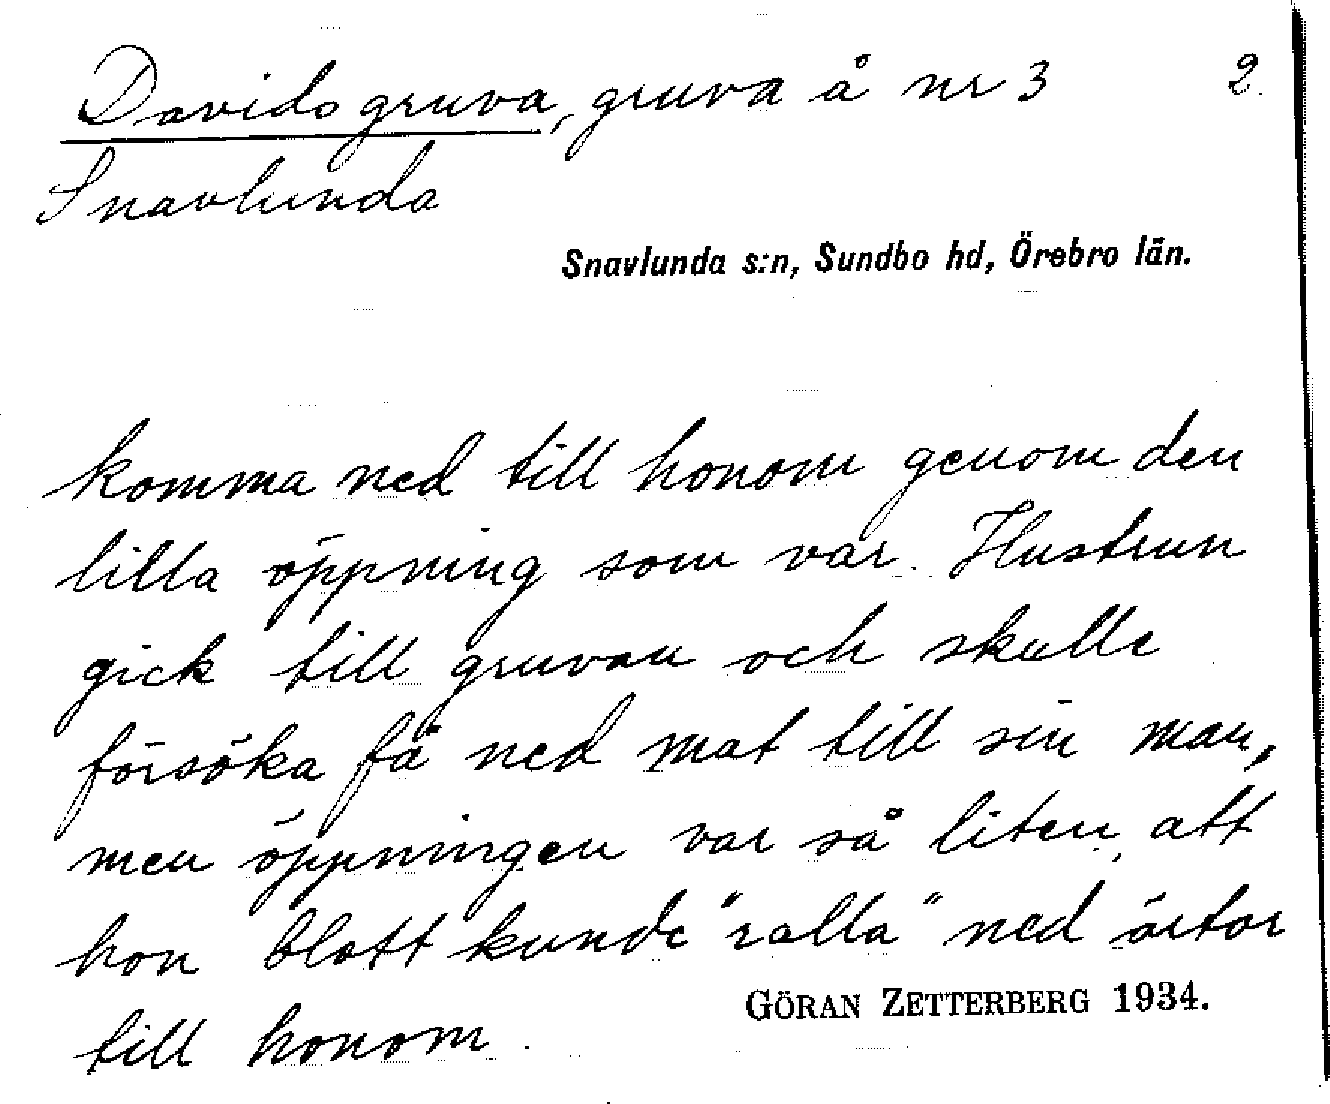 Davidsgruva, gruva å nr 3 2.
Snavlunda
Snavlunda s:n, Sundbo hd, Örebro län.
komma ned till honom genom den
lilla öppning som var. Hustrun
gick till gruvan och skulle
försöka få ned mat till sin man,
men öppningen var så liten, att
hon blott kunde "ralla" ned ärtor
till honom.
GÖRAN ZETTERBERG 1934.